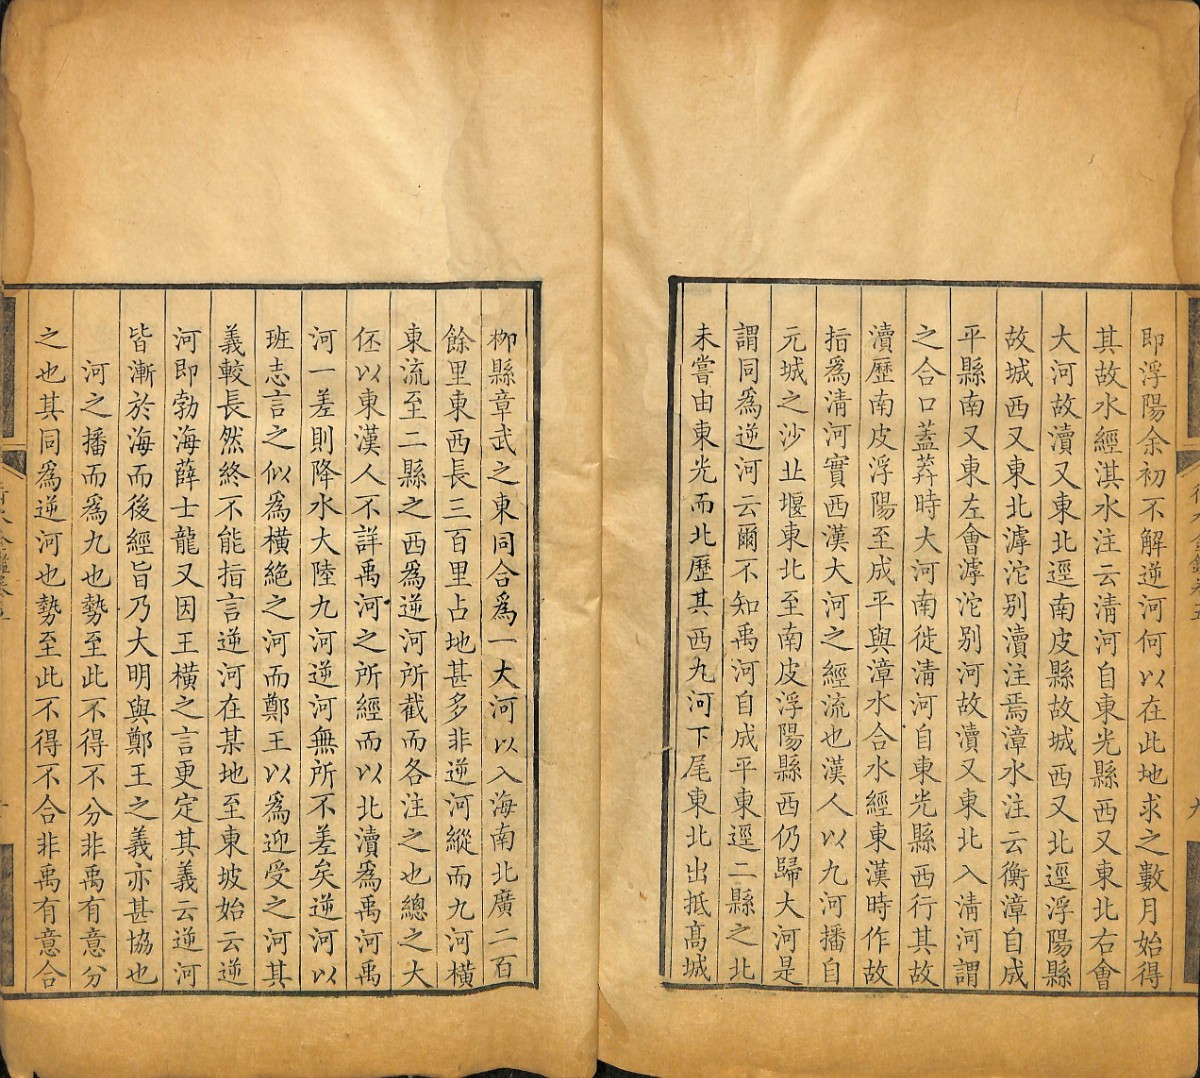 即浮陽余初不解逆河何以在此地求之數月始得
其故水經淇水注云清河自東光縣西又東北右會
大河故瀆又東北逕南皮縣故城西又北逕浮陽縣
故城西又東北滹沱別瀆注焉漳水注云衡漳自成
平縣南又東左會滹沱別河故瀆又東北入清河謂
之合口蓋莽時大河南徙清河自東光縣西行其故
瀆歷南皮浮陽至成平與漳水合水經東漢時作故
指爲清河實西漢大河之經流也漢人以九河播自
元城之沙丠堰東北至南皮浮陽縣西仍歸大河是
謂同爲逆河云爾不知禹河自成平東逕二縣之北
未嘗由東光而北歷其西九河下尾東北出抵高城
柳縣章武之東同合爲一大河以入海南北廣二百
餘里東西長三百里占地甚多非逆河縱而九河橫
東流至二縣之西爲逆河所截而各注之也總之大
伾以東漢人不詳禹河之所經而以北瀆爲禹河禹
河一差則降水大陸九河逆河無所不差矣逆河以
班志言之似爲橫絶之河而鄭王以爲迎受之河其
義較長然終不能指言逆河在某地至東坡始云逆
河即勃海薛士龍又因王橫之言更定其義云逆河
皆漸於海而後經旨乃大明與鄭王之義亦甚協也
河之播而爲九也勢至此不得不分非禹有意分
之也其同爲逆河也勢至此不得不合非禹有意合